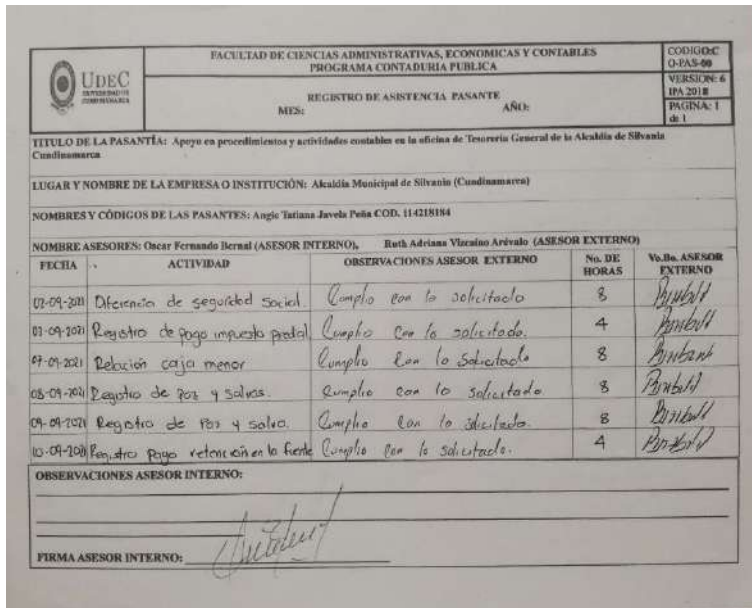 UDEC
UNIVERSIDAD DE
CUNDINAMARCA
FACULTAD DE CIENCIAS ADMINISTRATIVAS, ECONOMICAS Y CONTABLES
PROGRAMA CONTADURIA PUBLICA
CODIGO:C
O-PAS-00
REGISTRO DE ASISTENCIA PASANTE
MES: AÑO:
VERSION: 6
IPA 2018
PAGINA: 1
de 1
TITULO DE LA PASANTÍA: Apoyo en procedimientos y actividades contables en la oficina de Tesorería General de la Alcaldía de Silvania
Cundinamarca
LUGAR Y NOMBRE DE LA EMPRESA O INSTITUCIÓN: Alcaldía Municipal de Silvania (Cundinamarca)
NOMBRES Y CÓDIGOS DE LAS PASANTES: Angie Tatiana Javela Peña COD. 114218184
NOMBRE ASESORES: Oscar Fernando Bernal (ASESOR INTERNO), Ruth Adriana Vizcaino Arévalo (ASESOR EXTERNO)
FECHA ACTIVIDAD OBSERVACIONES ASESOR EXTERNO No. DE HORAS Vo.Bo. ASESOR EXTERNO
02-09-2021 Diferencia de seguridad social. Cumplio con lo solicitado 8
03-09-2021 Registro de pago impuesto predial Cumplio con lo solicitado. 4
07-09-2021 Relación caja menor Cumplio con lo solicitado 8
08-09-2021 Registro de Paz y salvos. Cumplio con lo solicitado 8
09-09-2021 Registro de Paz y salvo. Cumplio con lo solicitado. 8
10-09-2021 Registro Pago retención en la fuente Cumplio con lo solicitado. 4
OBSERVACIONES ASESOR INTERNO:
FIRMA ASESOR INTERNO: